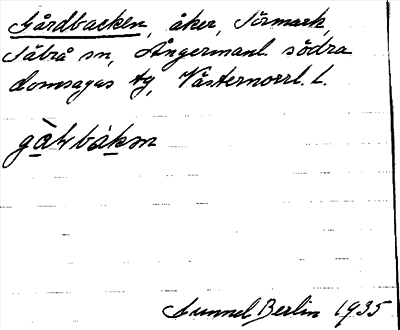 Gårdbacken, åker, Törmark,
Säbrå sn, Ångermanl. södra
domsagas tg, Västernorrl. l.
gàṛbákən
Sunnel Berlin 1935